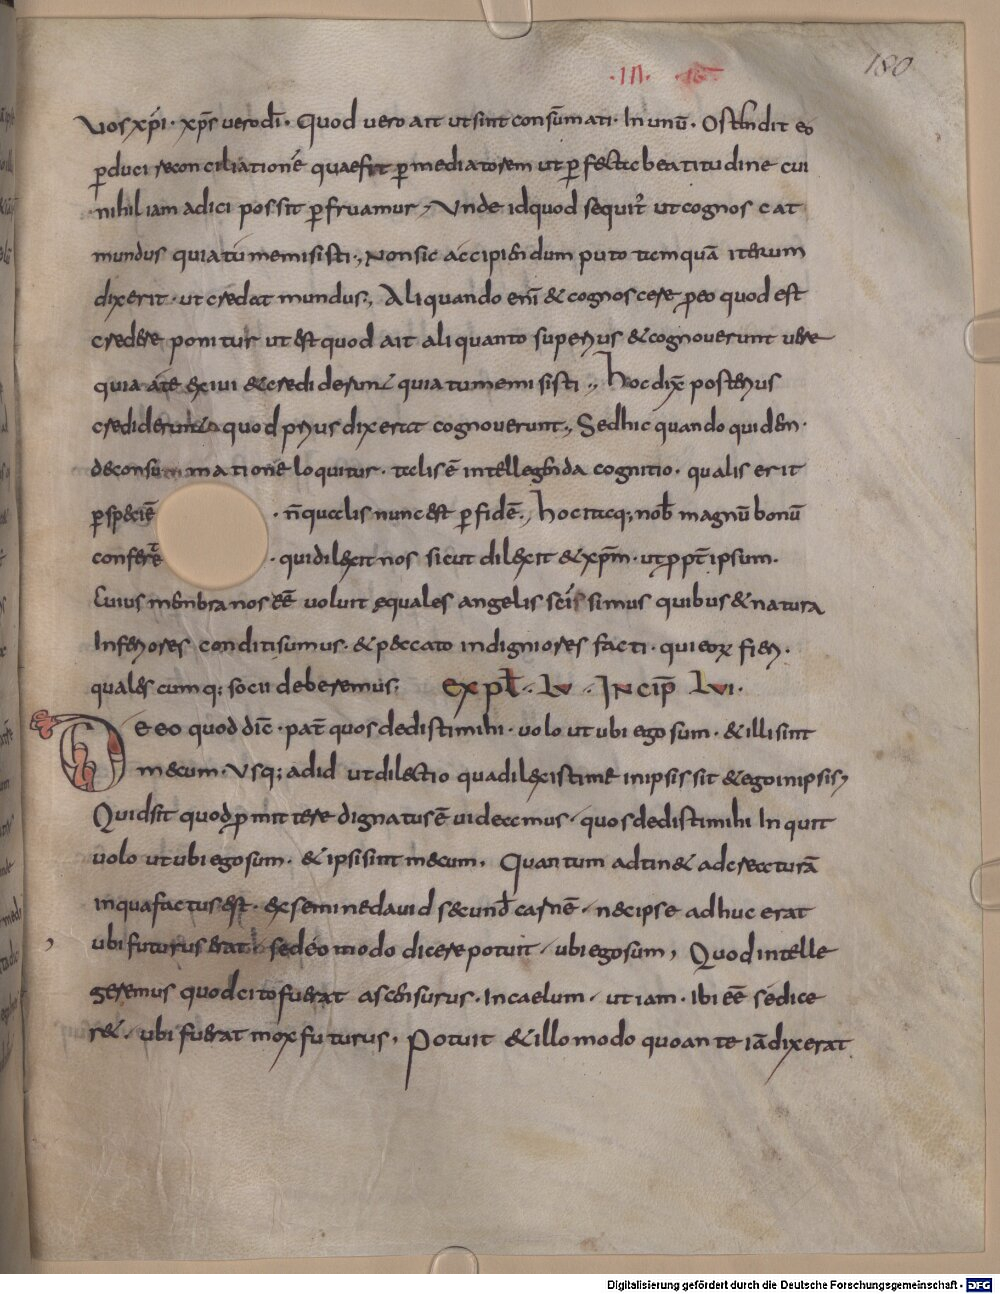 ·III· ·16·
180
Vos xp̄i· xp̄s vero dī· Quod vero ait ut sint consūmati· In unū· Ostendit eo
ꝑduci reconciliationē quae fit ꝑ mediatorem ut ꝑfecta beatitudine cui
nihil iam adici possit ꝑfruamur, Unde id quod sequit᷑ ut cognoscat
mundus quia tu me misisti·, Non sic accipiendum puto tamquā iterum
dixerit· ut credat mundus, Aliquando enī & cognoscere ꝓ eo quod est
credere ponitur ut est quod ait aliquanto superius & cognoverunt vere
quia a te exivi & crediderunt quia tu me misisti·, hoc dix̄ posterius
crediderunt quod prius dixerat cognoverunt·, Sed hic quando quidem·
de consummationē loquitur· talis ē intellegenda cognitio· qualis erit
ꝑ speciē · n̄ qualis nunc est ꝑ fidē·, hoc itaq; nob̄ magnū bonū
confere · qui dilexit nos sicut dilexit & xp̄m· ut ꝓpt̄ ipsum·
Cuius membra nos eē voluit equales angelis scīssimus quibus & natura
Inferiores conditi sumus· & peccato indigniores facti· qui eoꝝ fieri·
quales cumq; socii deberemus· Expl̄·LV· Incip̄ LVI·
De eo quod dic̄· pat̄ quos dedisti mihi· volo ut ubi ego sum· & illi sint
mecum· Usq; ad id ut dilectio qua dilexisti me in ipsis sit & ego in ipsis,
Quid sit quod ꝓmittere dignatus ē videamus· quos dedisti mihi Inquit
volo ut ubi ego sum· & ipsi sint mecum· Quantum adtin& ad creaturā
in qua factus est· ex semine david secund̄ carnē· nec ipse adhuc erat
ubi futurus erat sed eo modo dicere potuit· ubi ego sum, Quod intelle
geremus quod cito fuerat ascensurus· In caelum· ut iam· Ibi eē se dice
r&· ubi fuerat mox futurus· Potuit & illo modo quo ante iā dixerat
Digitalisierung gefördert durch die Deutsche Forschungsgemeinschaft - DFG